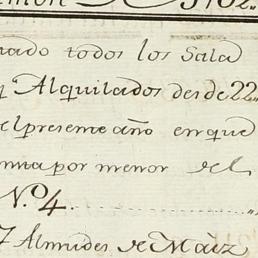 nado todos los Sala
q Alquilados desde 22
el presente año en que
por menor del
N.º 4.
7 Almudes de Maiz